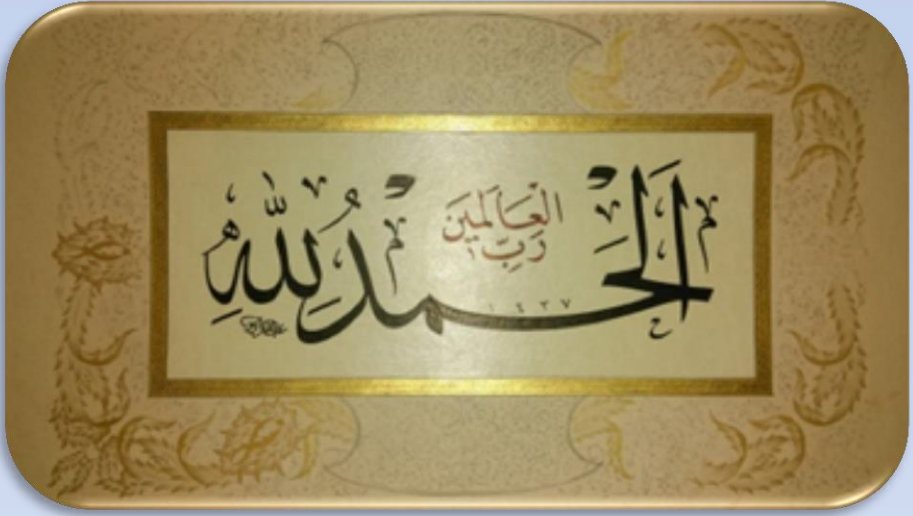 الْحَمْدُ لِلّٰهِ
رَبِّ
الْعَالَمِينَ
١٤٣٧